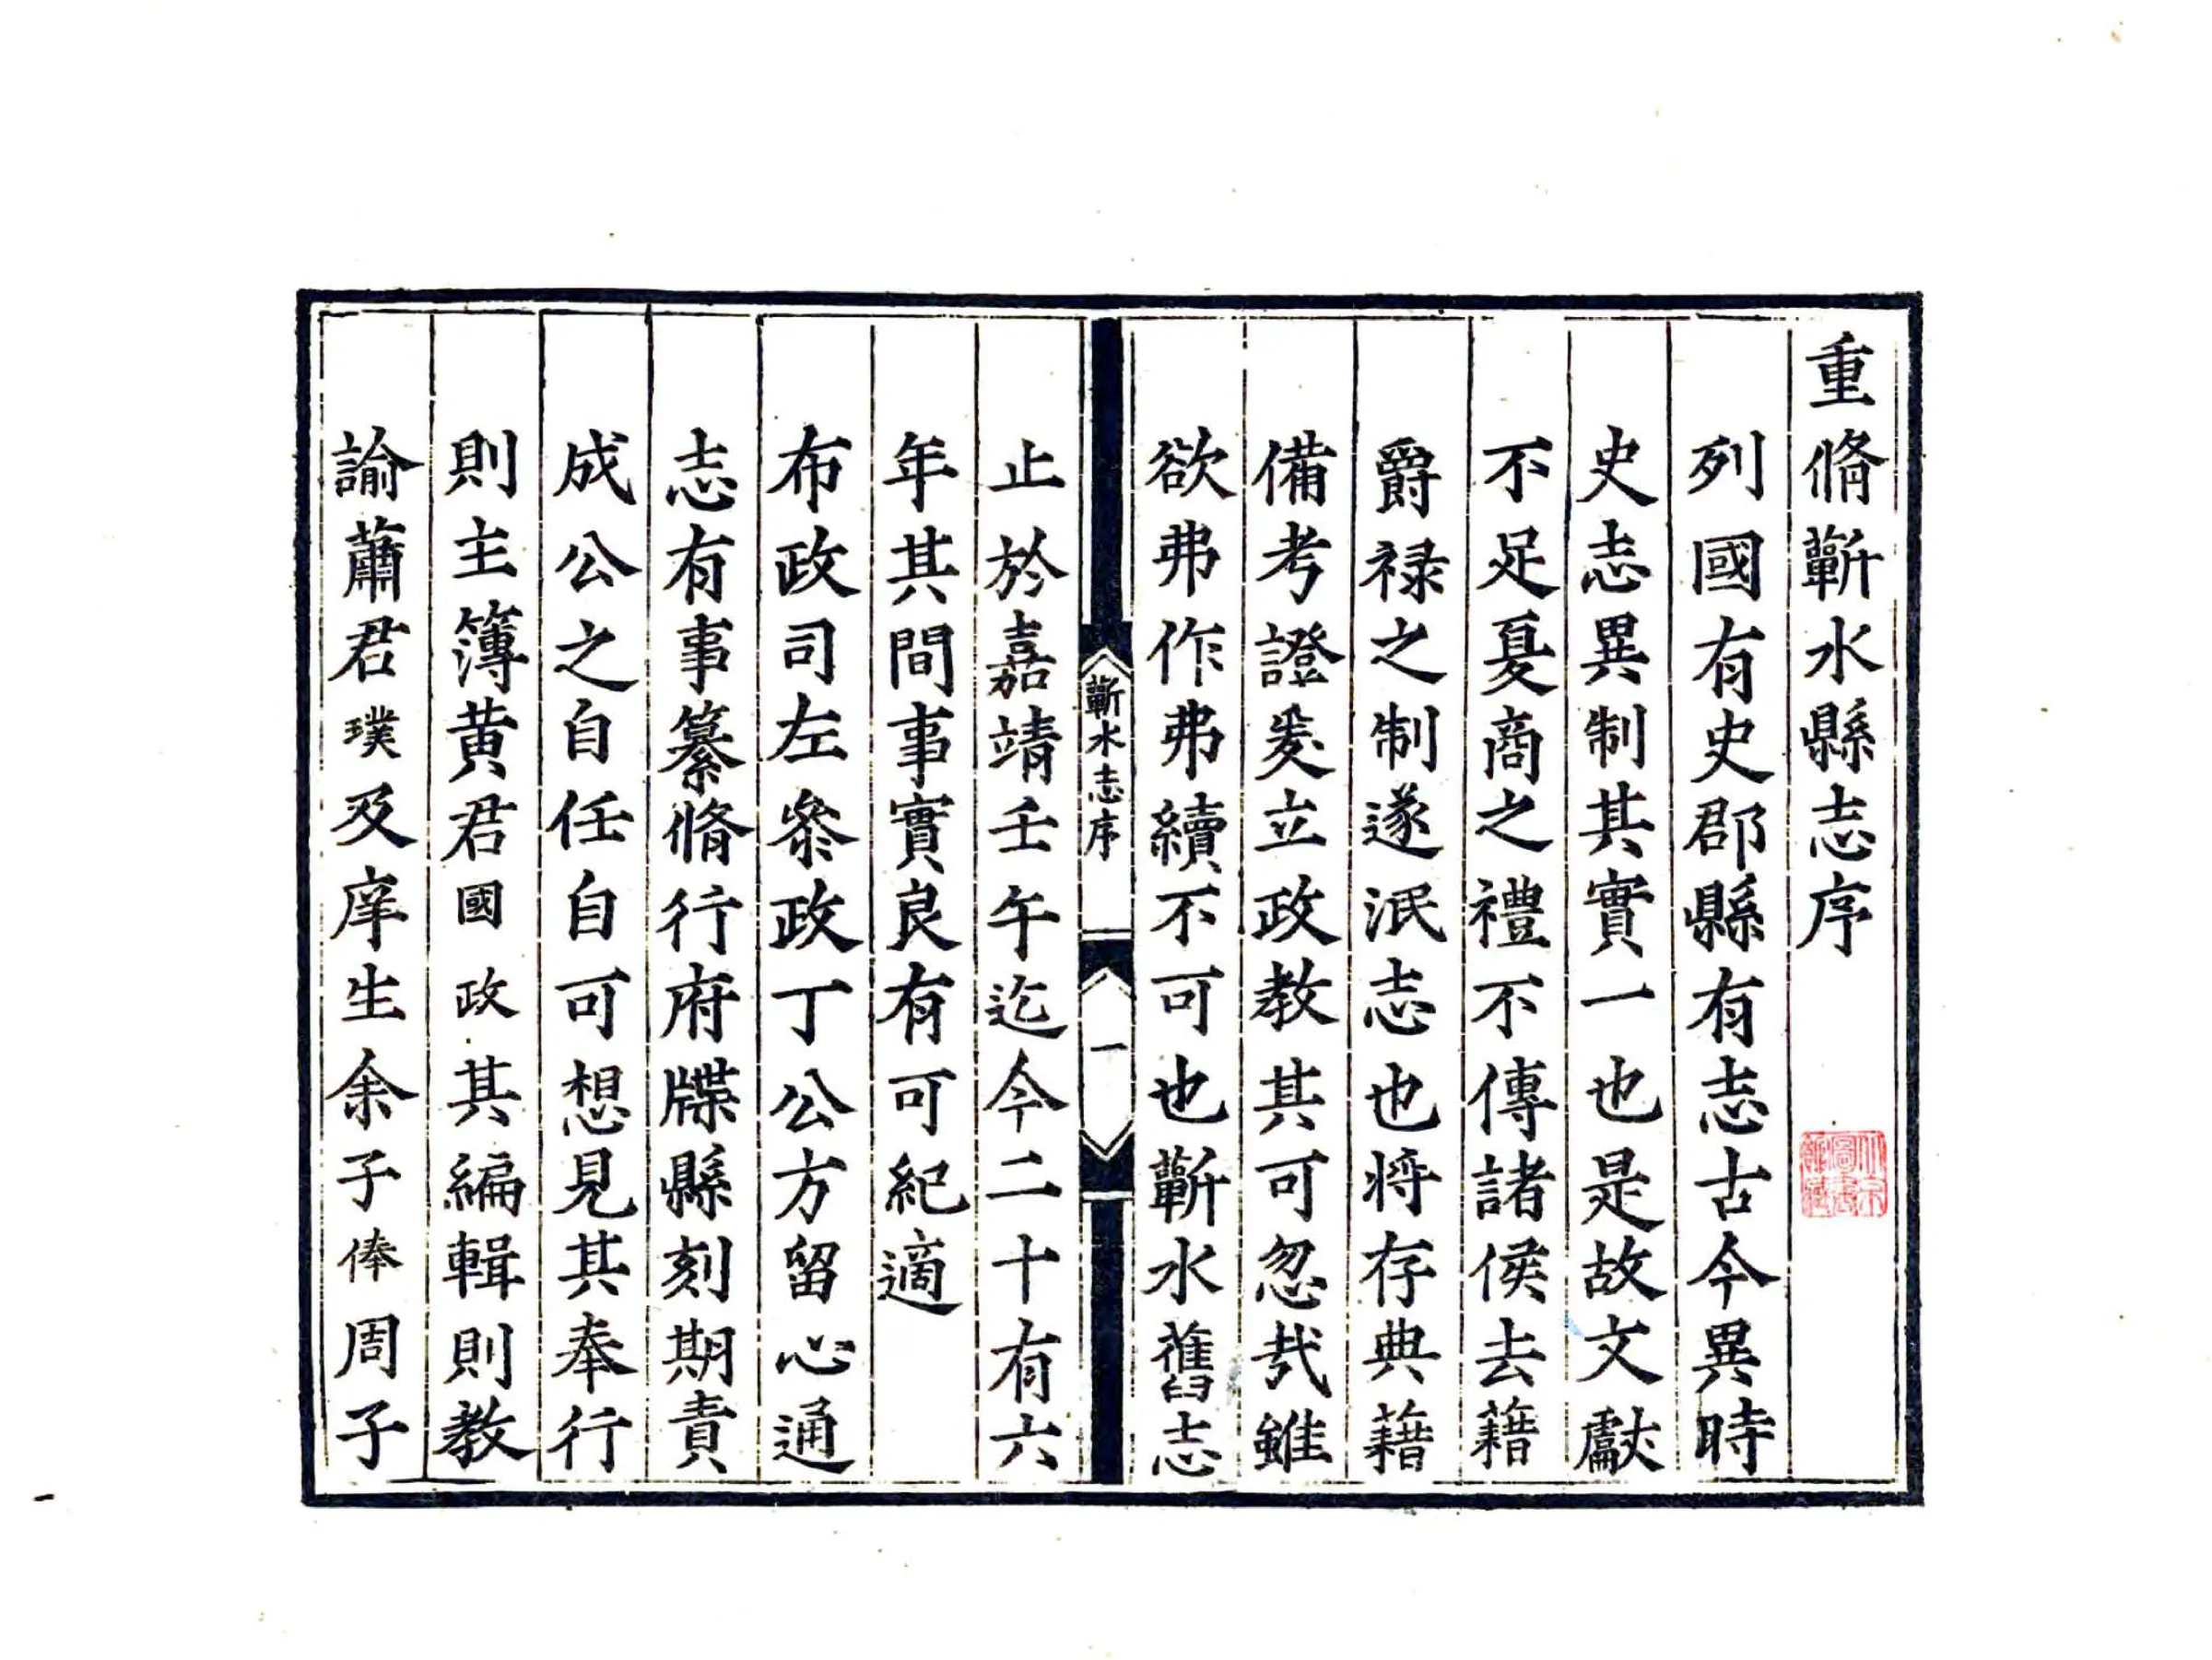 重脩蘄水縣志序
列國有史郡縣有志古今異時
史志異制其實一也是故文獻
不足夏商之禮不傳諸侯去籍
爵禄之制遂泯志也將存典籍
備考證爰立政教其可忽哉雖
欲弗作弗續不可也蘄水舊志
蘄水志序
一
止於嘉靖壬午迄今二十有六
年其間事實良有可紀適
布政司左叅政丁公方留心通
志有事纂脩行府牒縣刻期責
成公之自任自可想見其奉行
則主簿黄君國政其編輯則教
諭蕭君璞及庠生余子俸周子